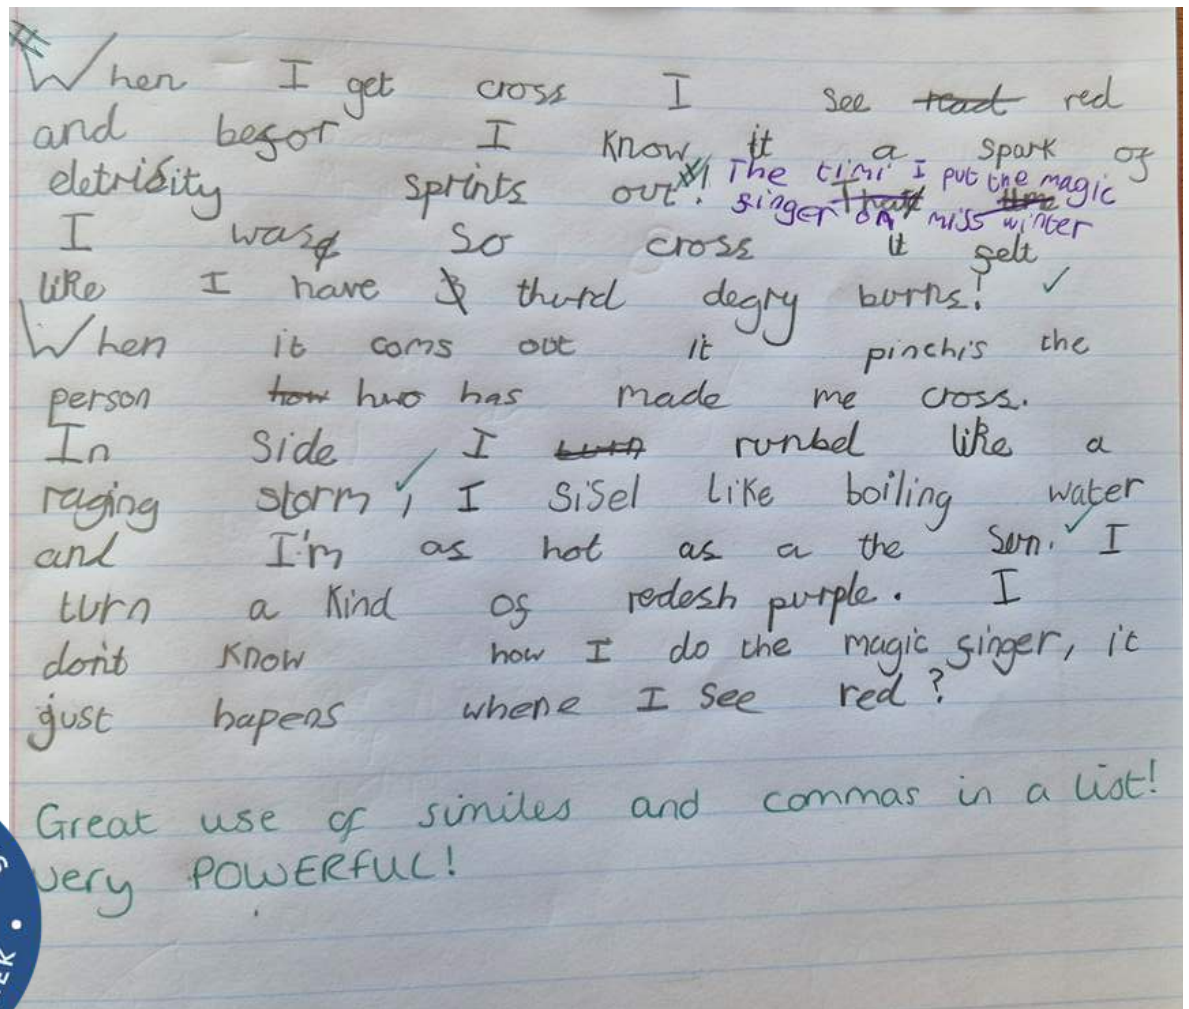 When I get cross I see read red
and befor I know it a spark of
eletrisity sprints out. The timi I put the magic
finger on that time miss winter
I was so cross it felt
like I have third degry burns!
When it coms out it pinchis the
person how hwo has made me cross.
In side I burn runbel like a
raging storm, I sisel like boiling water
and I'm as hot as a the sun. I
turn a kind of redesh purple. I
don't know how I do the magic finger, it
just hapens whene I see red?
Great use of similes and commas in a list!
very POWERFUL!